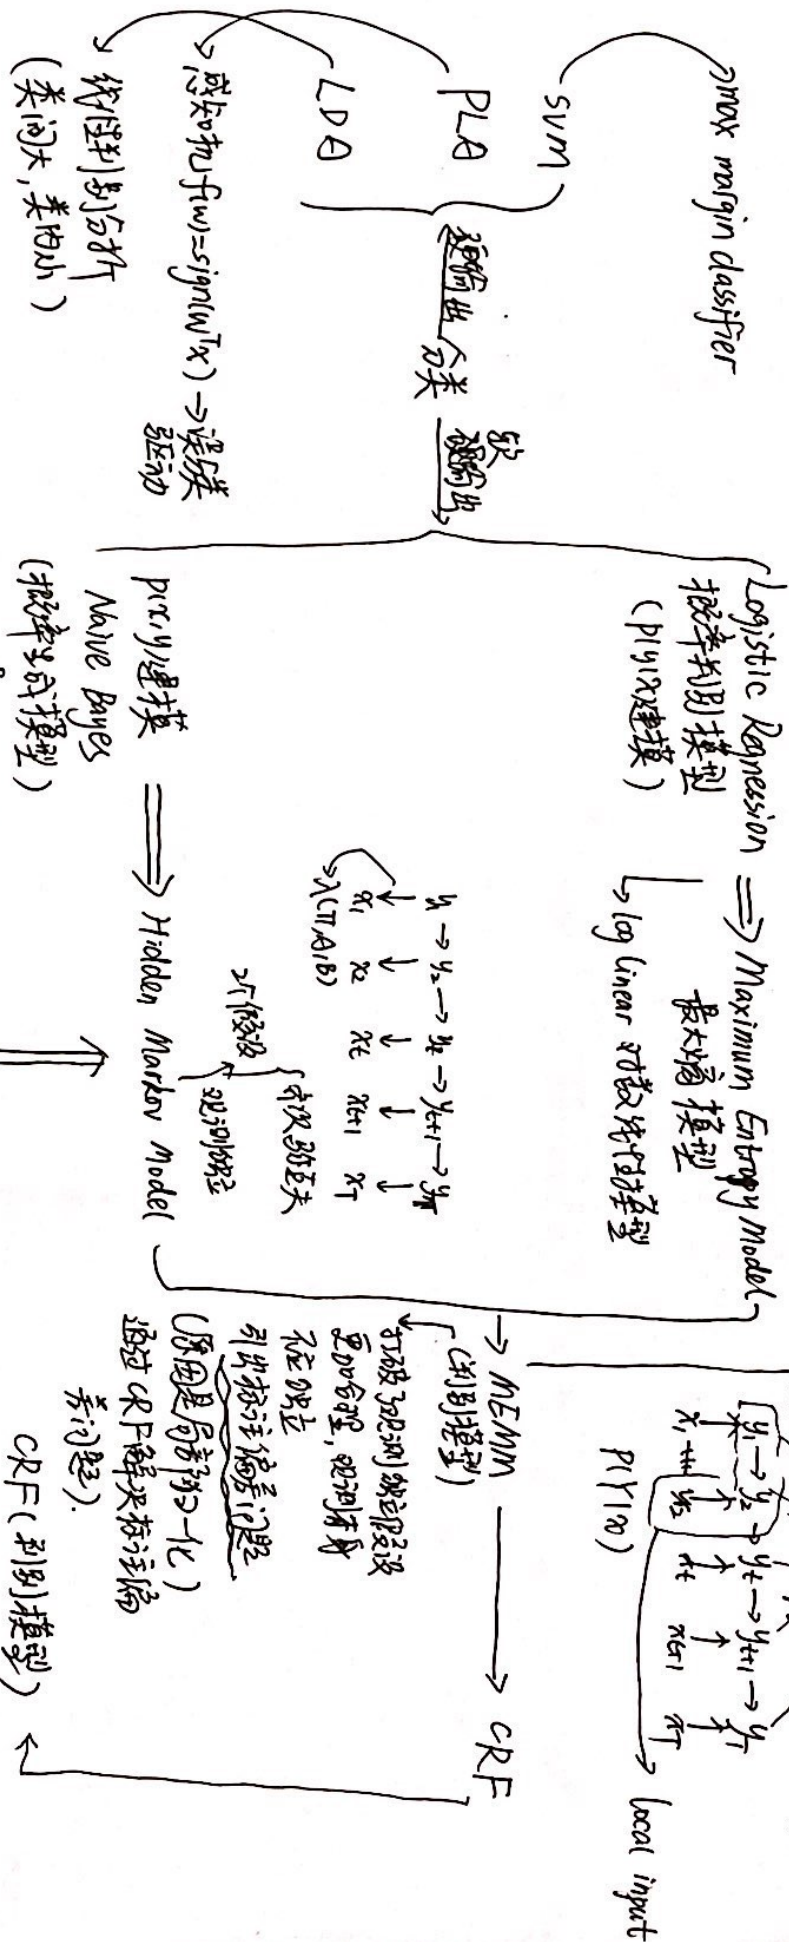 max margin classifier
SVM
PLA
LDA
感知机f(w)=sign(wᵀx) → 误分类
驱动
线性判别分析
(类间大, 类内小)
硬输出
分类
软
硬输出
Logistic Regression ⟹ Maximum Entropy Model
概率判别模型
(p(y|x)建模)
最大熵模型
log linear 对数线性模型
p(x,y)建模
Naive Bayes
(概率生成模型)
⟹ Hidden Markov Model
y₁ → y₂ → yt → yt+1 → yT
x₁ x₂ xt xt+1 xT
λ(π,A,B)
2个假设
齐次马尔夫
观测独立
→ MEMM → CRF
(判别模型)
打破了观测独立假设
更加合理, 观测本身
不应独立
引出标注偏差问题
(原因是局部归一化)
通过CRF解决标注偏
差问题).
CRF(判别模型)
y₁ → y₂ → yt → yt+1 → yT
x₁ x₂ xt xt+1 xT
P(Y|X)
local input